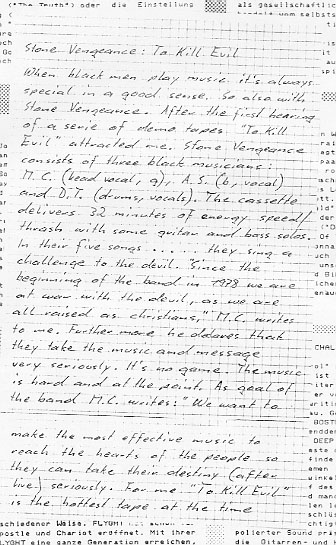 ("The Truth") oder die Einstellung
als gesellschaftlic
Stone Vengeance: To Kill Evil
When black men play music it's always
special in a good sense. So also with
Stone Vengeance. After the first hearing
of a serie of demo tapes "To Kill
Evil" attracted me. Stone Vengeance
consists of three black musicians:
M.C. (lead vocal, g), A.S. (b, vocal)
and D.T. (drums, vocals). The cassette
delivers 32 minutes of energy speed/
thrash with some guitar and bass solos.
In their five songs ...... they sing a
challenge to the devil. "Since the
beginning of the band in 1978 we are
at war with the devil, as we are
all raised as christians," M.C. writes
to me. Further more he declares that
they take the music and message
very seriously. It's no game. The music
is hard and at the point. As goal of
the band M.C. writes: "We want to
make the most effective music to
reach the hearts of the people so
they can take their destiny (after
live) seriously. For me "To Kill Evil"
is the hottest tape at the time
schiedener Weise. FLYGHT
postle und Chariot eröffnet. Mit ihrer
LYGHT eine ganze Generation erreichen.
polierter Sound
die Gitarren- und